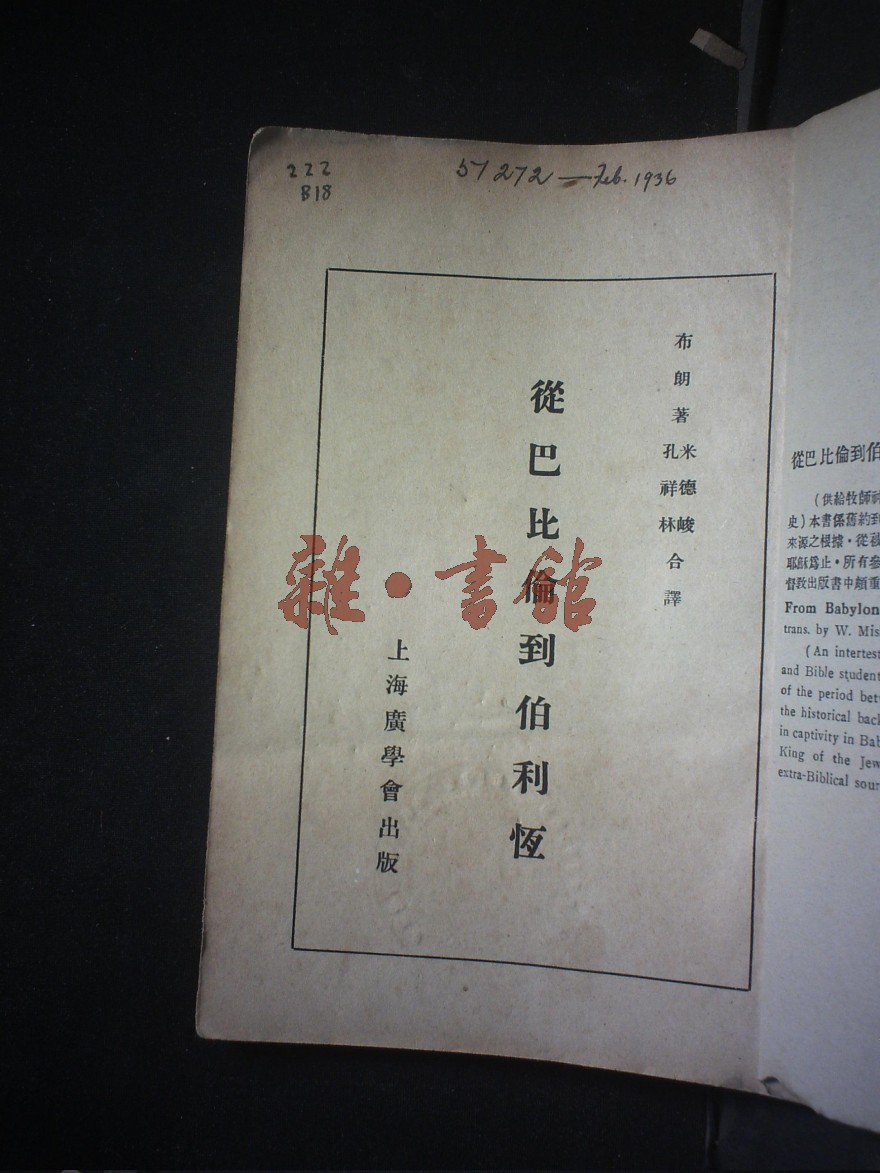 222
B18
57272—Feb. 1936
布朗著
米德峻
孔祥林
合譯
從巴比倫到伯利恆
上海廣學會出版
雜·書館
從巴比倫到伯
(供給牧師
史)本書係舊約到
來源之根據·從
耶穌爲止·所有參
督教出版書中頗重
From Babylon
trans. by W. Mis
(An intertest
and Bible student
of the period bet
the historical back
in captivity in Bab
King of the Jew
extra-Biblical sour